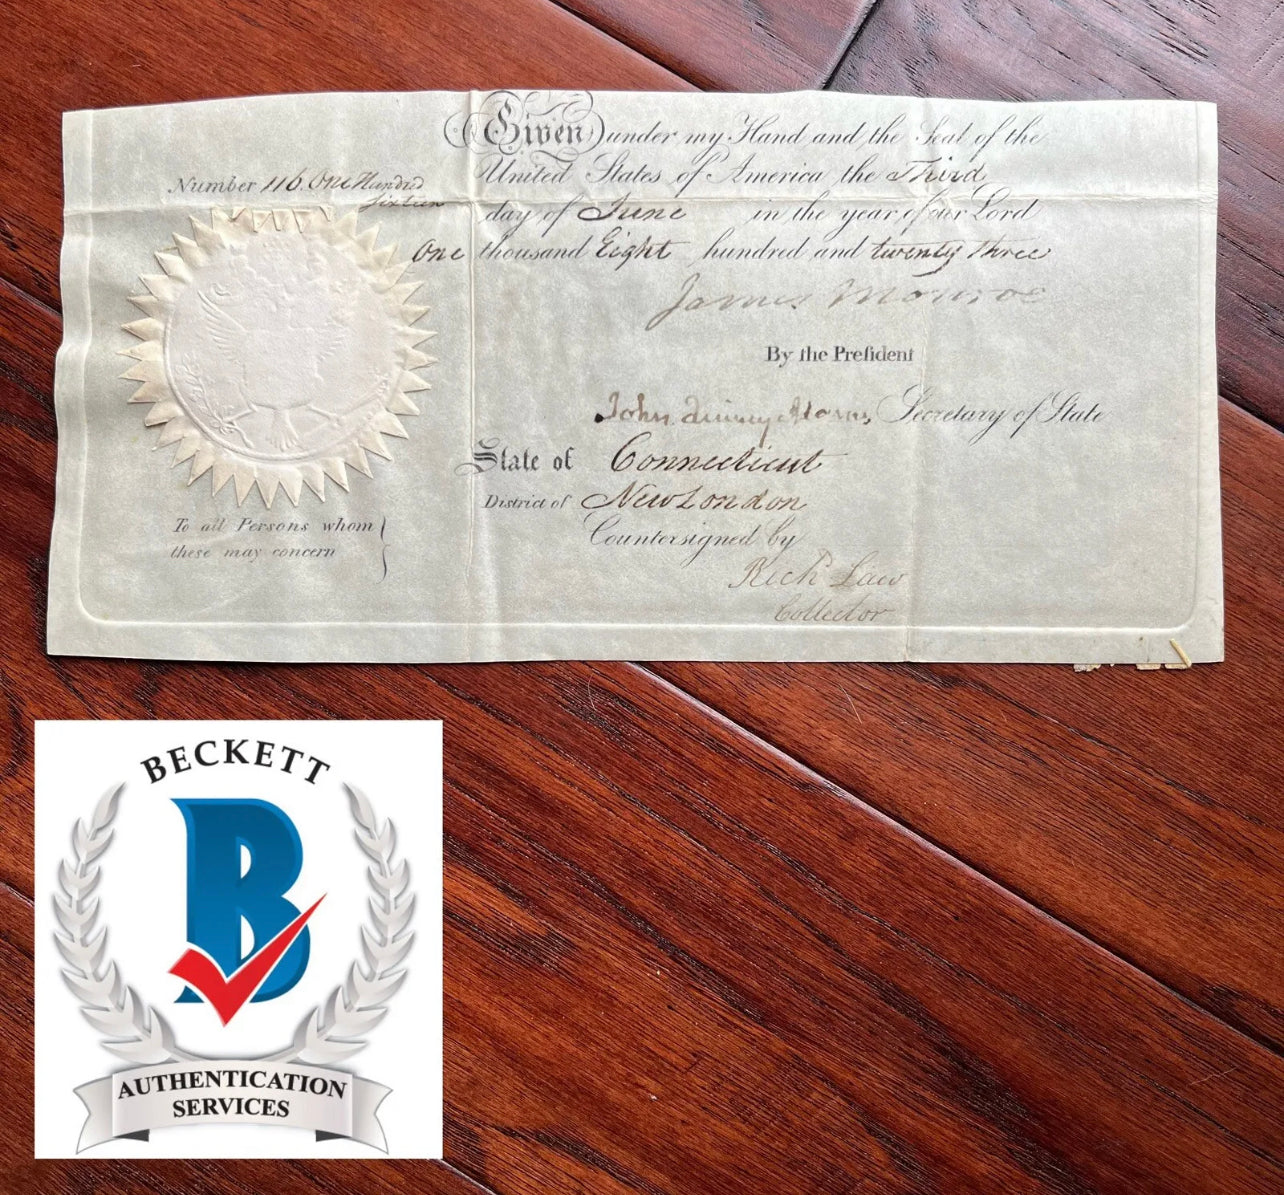 Given under my Hand and the Seal of the
United States of America the Third
Number 116 One Hundred
Sixteen
day of June in the year of our Lord
One thousand Eight hundred and twenty three
James Monroe
By the Preſident
John Quincy Adams Secretary of State
State of Connecticut
District of New London
Countersigned by
Richd Law
Collector
To all Persons whom
these may concern
BECKETT
B
AUTHENTICATION
SERVICES